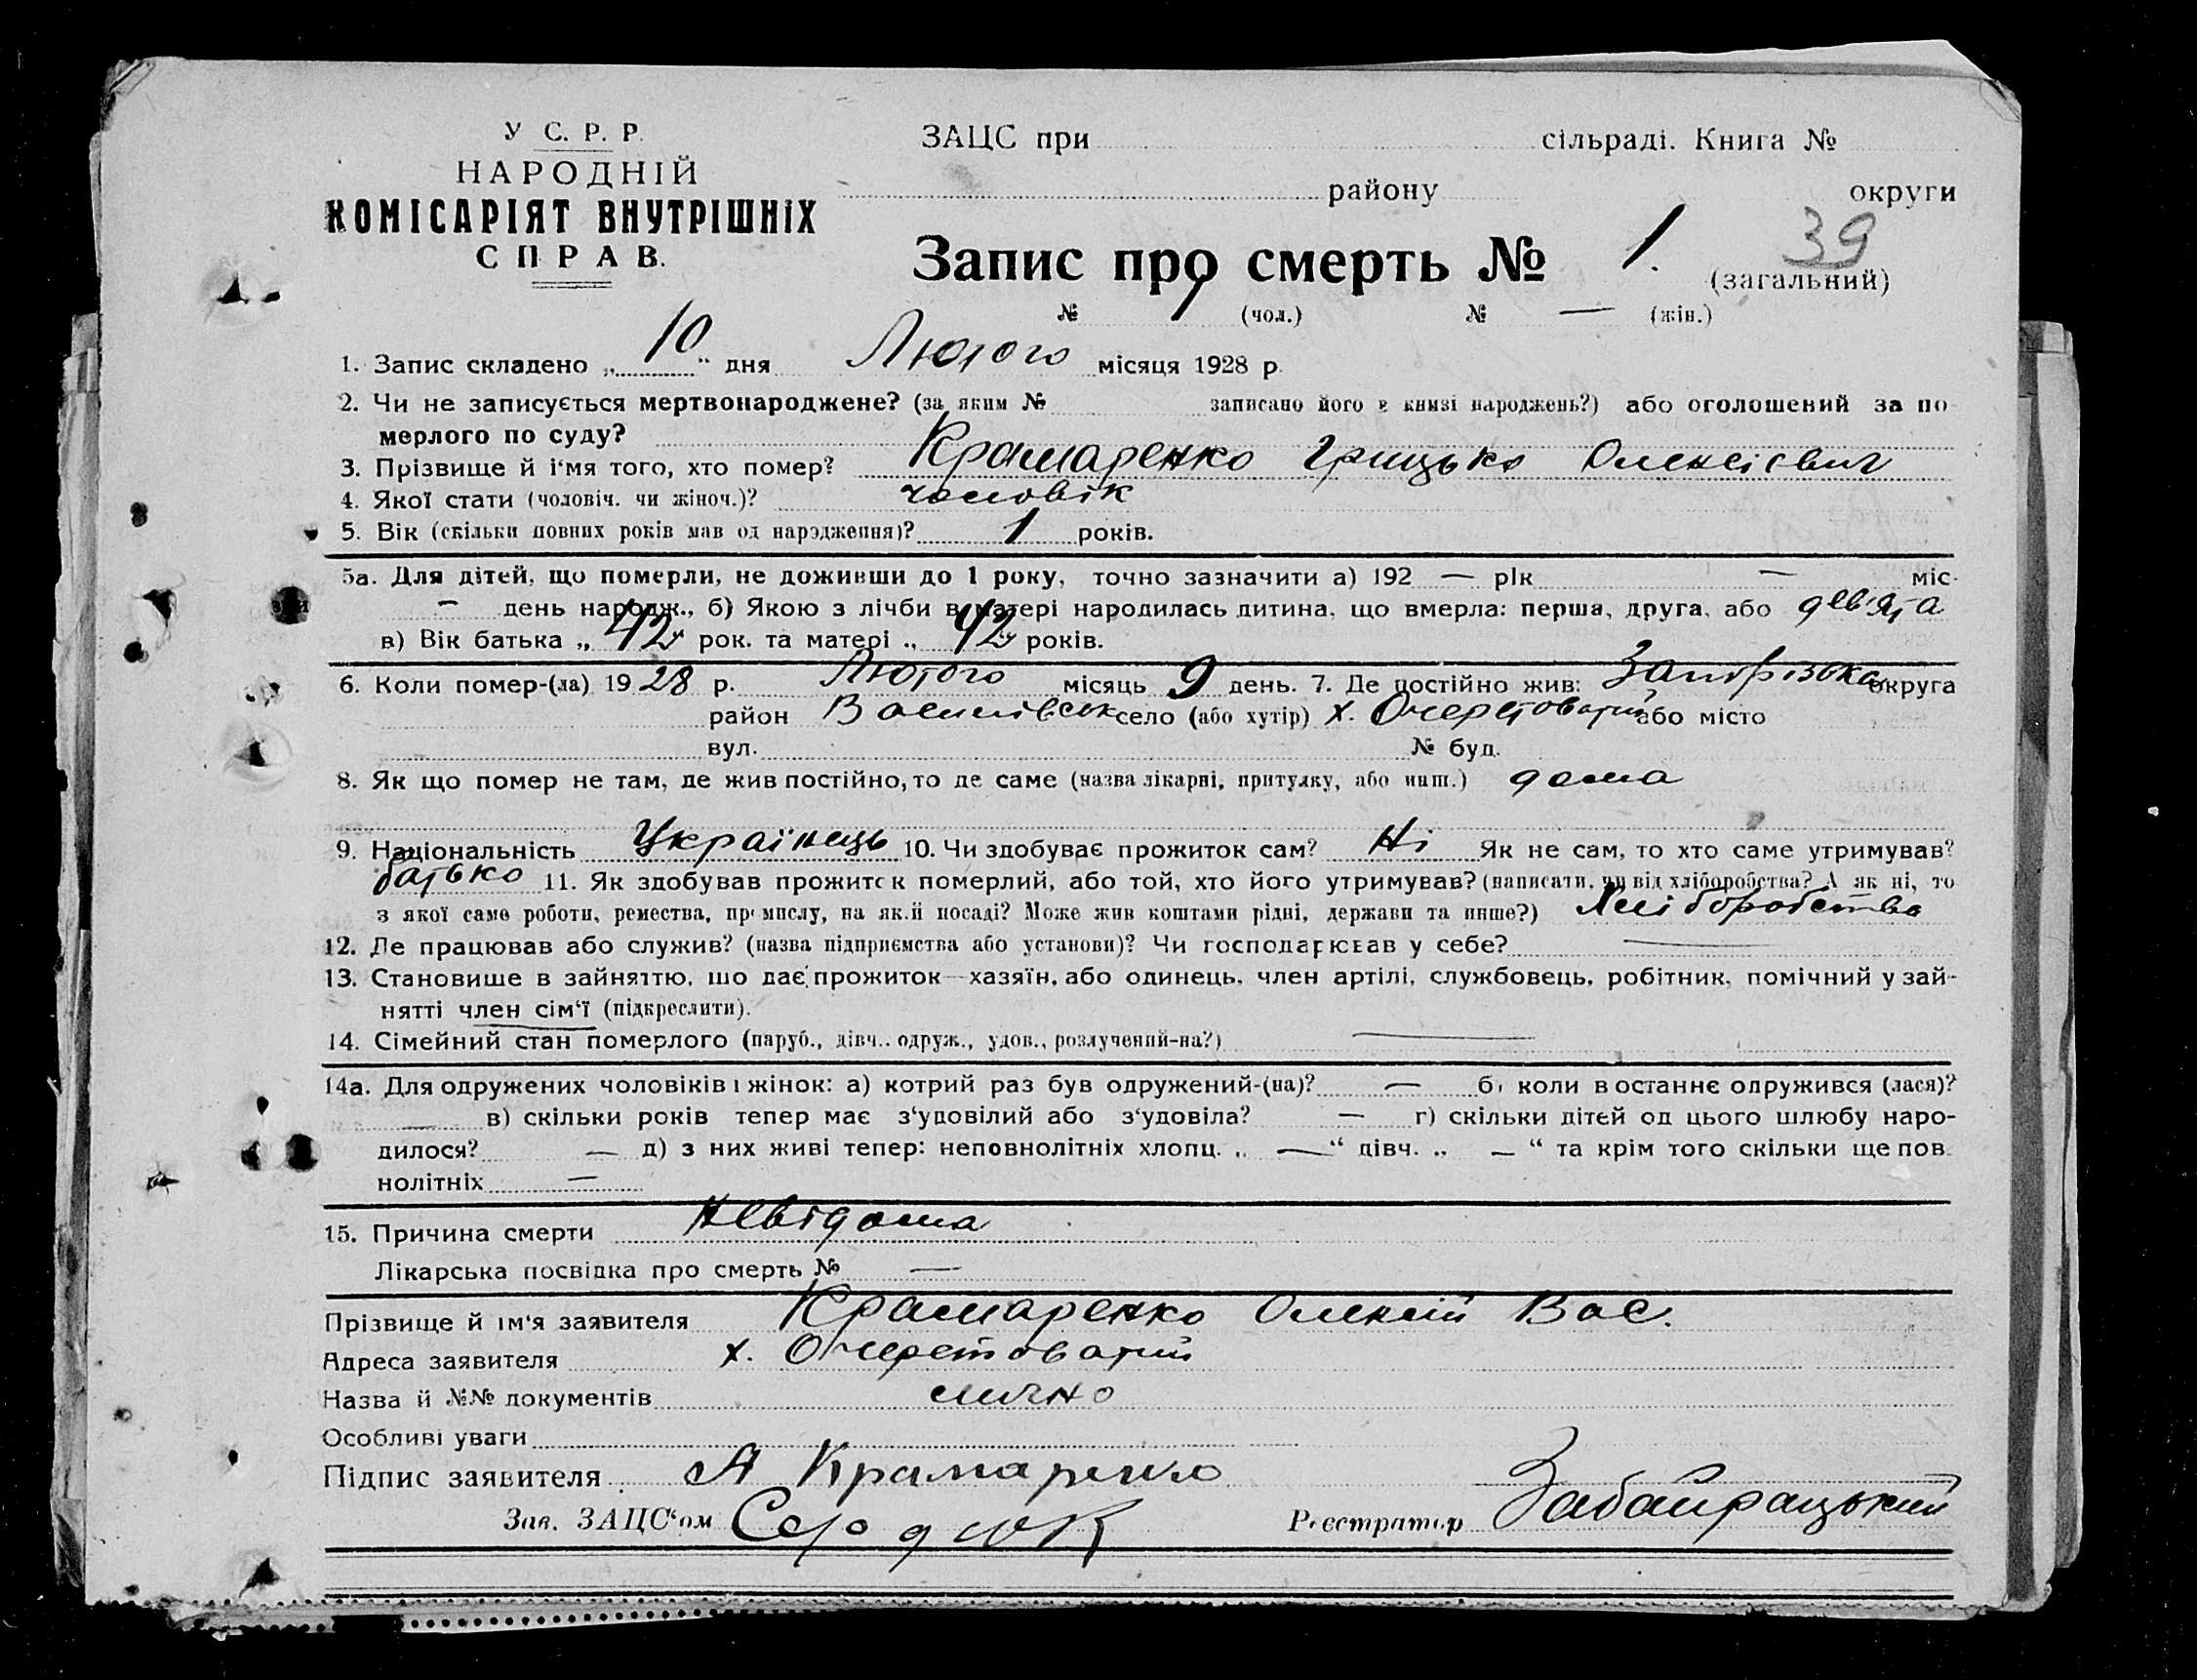 У С. Р. Р.
НАРОДНІЙ
КОМІСАРІЯТ ВНУТРІШНІХ
СПРАВ.
ЗАЦС при сільраді. Книга №
району округи
39
Запис про смерть № 1. (загальний)
№ 1 (чол.) № — (жін.)
1. Запис складено „ 10 “ дня Лютого місяця 1928 р.
2. Чи не записується мертвонароджене? (за яким № записано його в книзі народжень?) або оголошений за по
мерлого по суду?
3. Прізвище й і‘мя того, хто помер? Крамаренко Грицько Олексієвич
4. Якої стати (чоловіч. чи жіноч.)? чоловік
5. Вік (скільки повних років мав од народження)? 1 років.
5а. Для дітей, що померли, не доживши до 1 року, точно зазначити а) 192 — рік — міс.
— день народж., б) Якою з лічби в матері народилась дитина, що вмерла: перша, друга, або девята
в) Вік батька „ 42 рок. та матері „ 42 років.
6. Коли помер-(ла) 1928 р. Лютого місяць 9 день. 7. Де постійно жив: округа
район Василівськ село (або хутір) х. Очеретоватий або місто
вул. № буд.
8. Як що помер не там, де жив постійно, то де саме (назва лікарні, притулку, або инш.) дома
9. Національність Українець 10. Чи здобуває прожиток сам? Ні Як не сам, то хто саме утримував?
батько 11. Як здобував прожиток померлий, або той, хто його утримував? (написати, чи від хліборобства? А як ні, то
з якої саме роботи, ремества, промислу, на якій посаді? Може жив коштами рідні, держави та инше?) Хліборобство
12. Де працював або служив? (назва підприємства або установи)? Чи господарював у себе? —
13. Становище в зайняттю, що дає прожиток—хазяїн, або одинець, член артілі, службовець, робітник, помічний у зай-
нятті член сім‘ї (підкреслити).
14. Сімейний стан померлого (паруб., дівч.. одруж., удов., розлучений-на?) —
14а. Для одружених чоловіків і жінок: а) котрий раз був одружений-(на)? — б) коли в останнє одружився (лася)?
— в) скільки років тепер має з‘удовілий або з‘удовіла? — г) скільки дітей од цього шлюбу наро-
дилося? — д) з них живі тепер: неповнолітніх хлопц. „ — “ дівч. „ — “ та крім того скільки ще пов
нолітніх —
15. Причина смерти Невідома
Лікарська посвідка про смерть № —
Прізвище й ім‘я заявителя Крамаренко Олексій Вас.
Адреса заявителя х. Очеретоватий
Назва й №№ документів лично
Особливі уваги
Підпис заявителя А Крамаренко
Зав. ЗАЦС‘ом Реєстратор